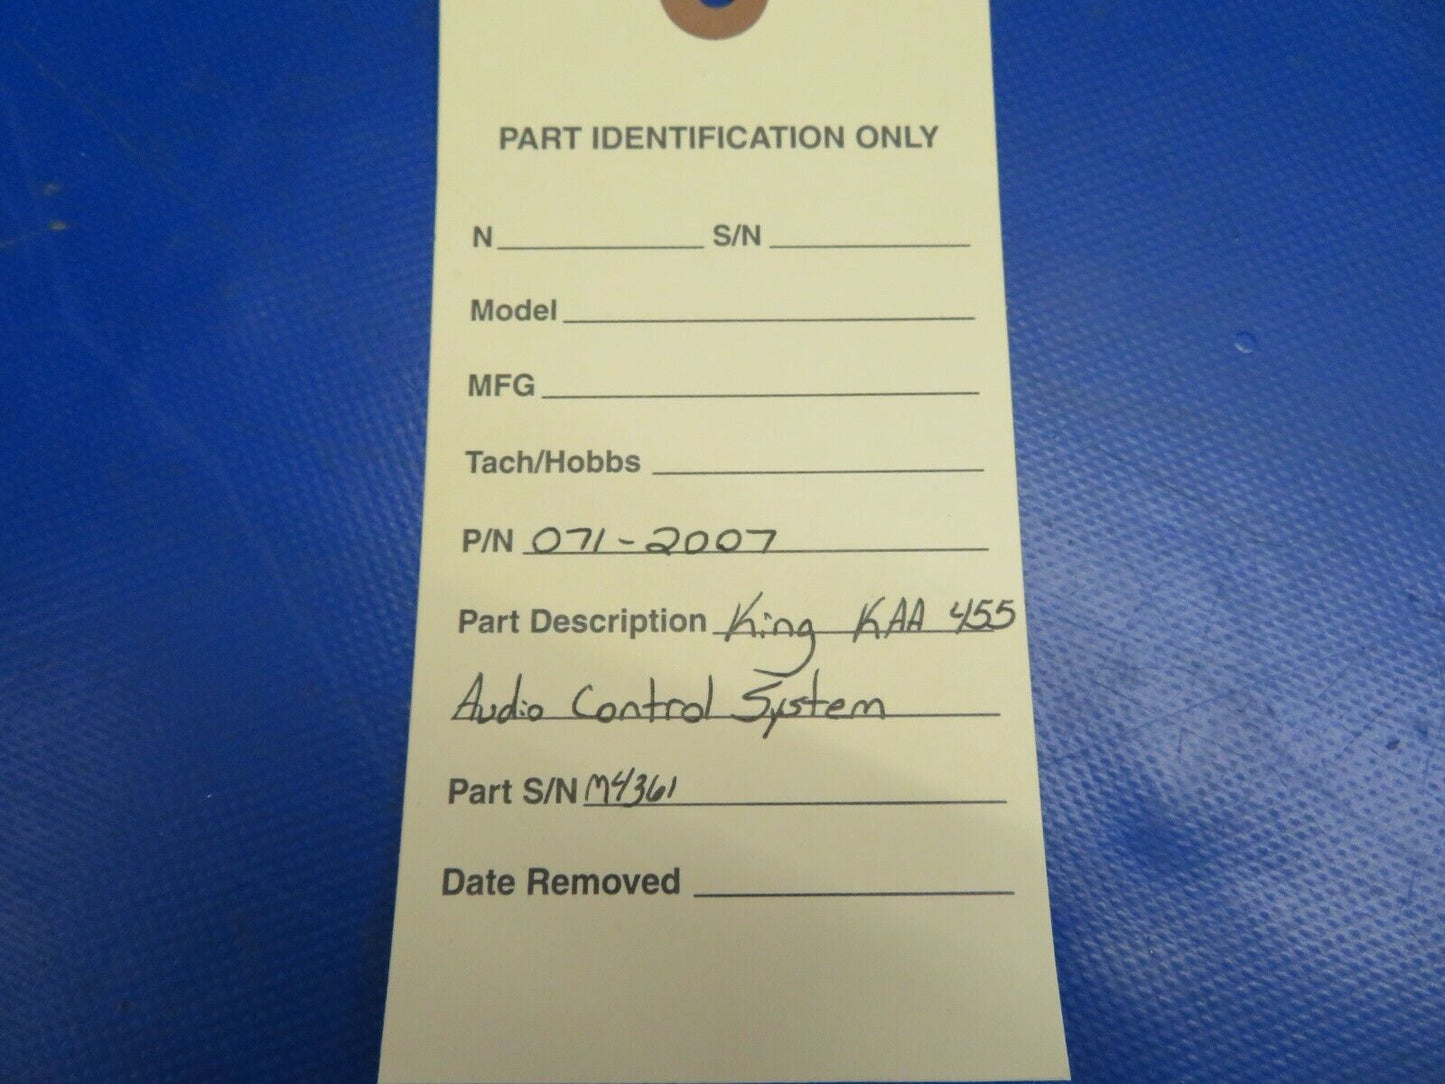 PART IDENTIFICATION ONLY
N S/N
Model
MFG
Tach/Hobbs
P/N 071-2007
Part Description King KAA 455
Audio Control System
Part S/N M4361
Date Removed